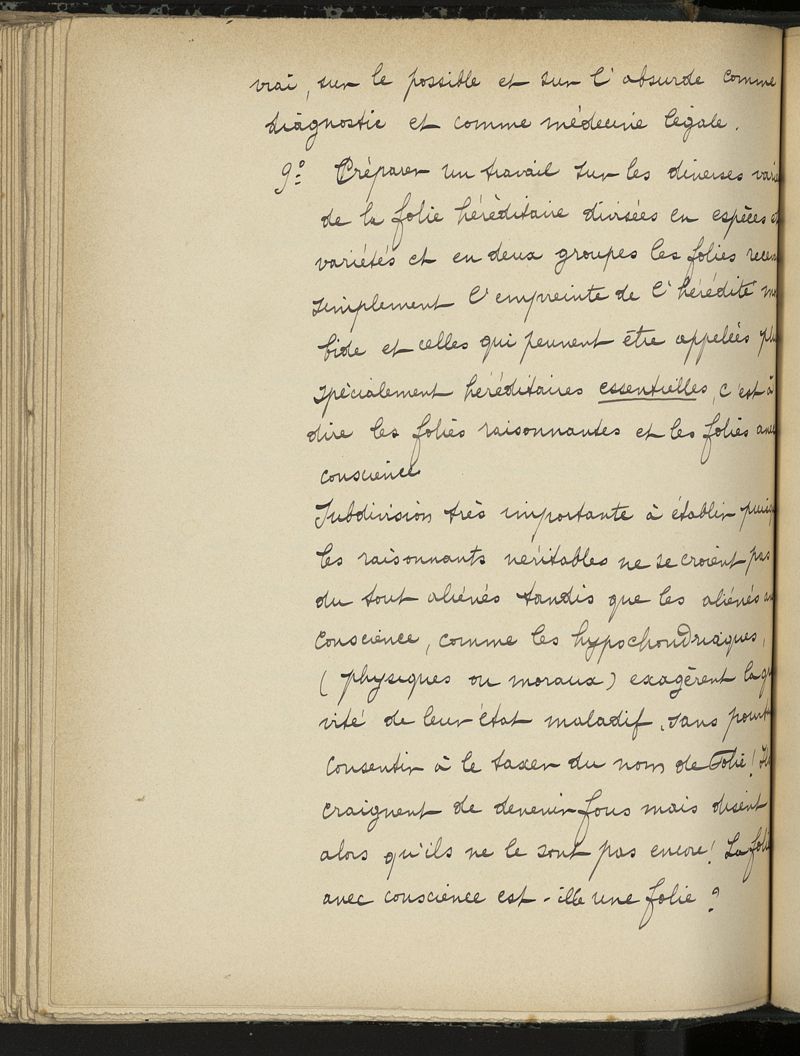 vrai, sur le possible et sur l'absurde comme
diagnostic et comme médecine légale.
9º Préparer un travail sur les diverses vari
de la folie héréditaire divisées en espèces et
variétés et en deux groupes les folies recev
simplement l'empreinte de l'hérédité mo
bide et celles qui peuvent être appelées plu
spécialement héréditaires essentielles, c'est à
dire les folies raisonnantes et les folies avec
conscience
Subdivision très importante à établir puisq
les raisonnants véritables ne se croient pas
du tout aliénés tandis que les aliénés av
conscience, comme les hypochondriaques,
(physiques ou moraux) exagèrent la gra
vité de leur état maladif, sans pourt
consentir à le taxer du nom de Folie! Ils
craignent de devenir fous mais disent
alors qu'ils ne le sont pas encore! La folie
avec conscience est-elle une folie?